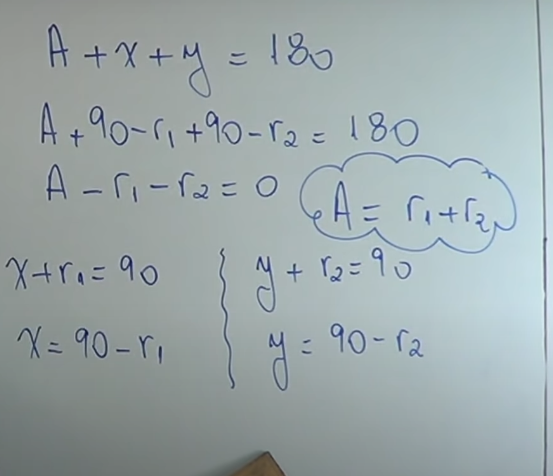 A + x + y = 180
A + 90 - r₁ + 90 - r₂ = 180
A - r₁ - r₂ = 0
A = r₁ + r₂
x + r₁ = 90
x = 90 - r₁
y + r₂ = 90
y = 90 - r₂